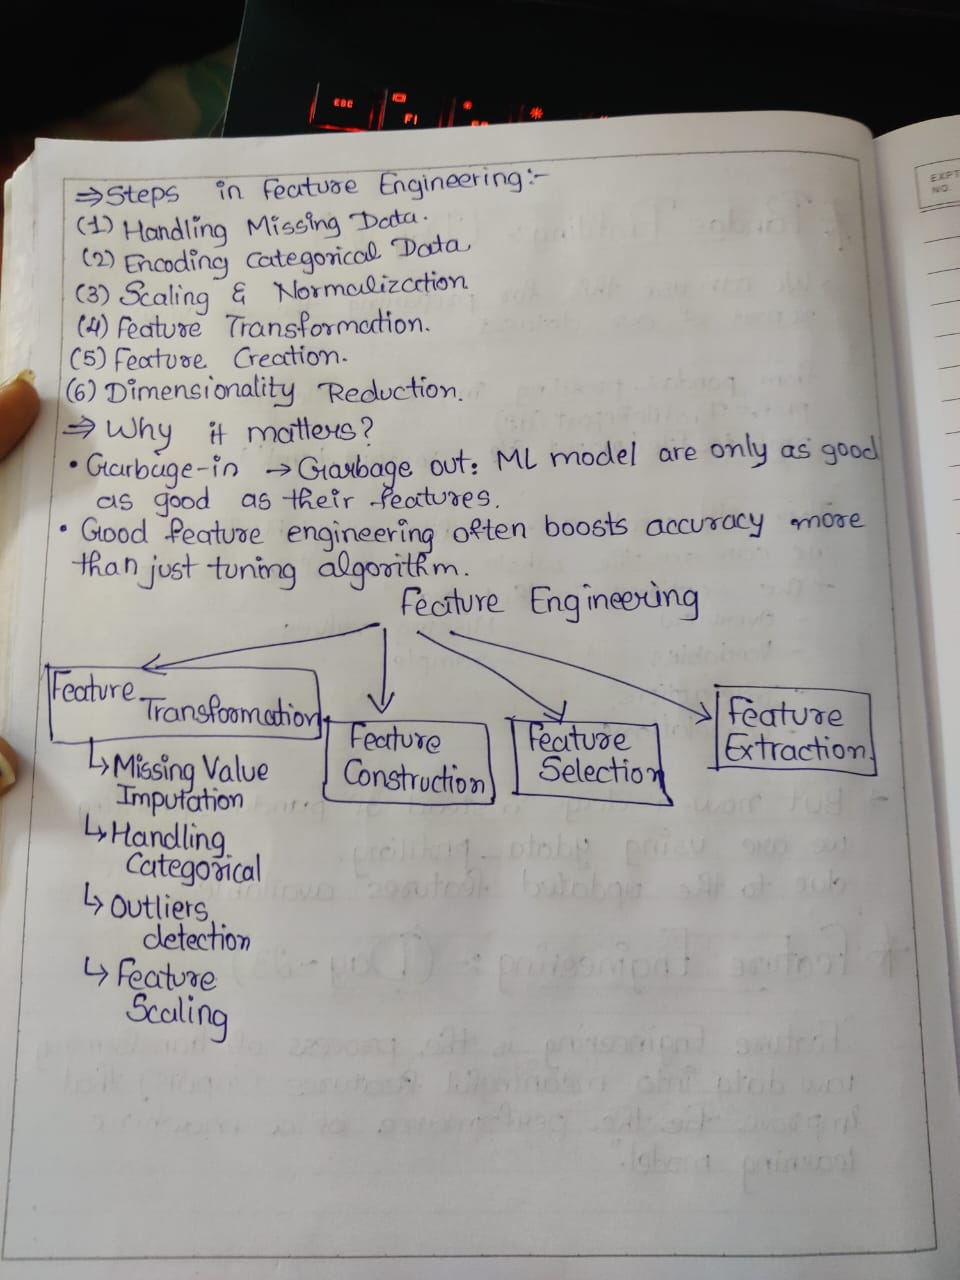 ⇒ Steps in Feature Engineering:-
(1) Handling Missing Data.
(2) Encoding Categorical Data
(3) Scaling & Normalization
(4) Feature Transformation.
(5) Feature Creation.
(6) Dimensionality Reduction.
⇒ Why it matters?
• Garbage-in → Garbage out: ML model are only as good
as good as their features.
• Good feature engineering often boosts accuracy more
than just tuning algorithm.
Feature Engineering
Feature
Transformation
Feature
Construction
Feature
Selection
Feature
Extraction
↳ Missing Value
Imputation
↳ Handling
Categorical
↳ Outliers
detection
↳ Feature
Scaling
EXPT
NO.
ESC
F1